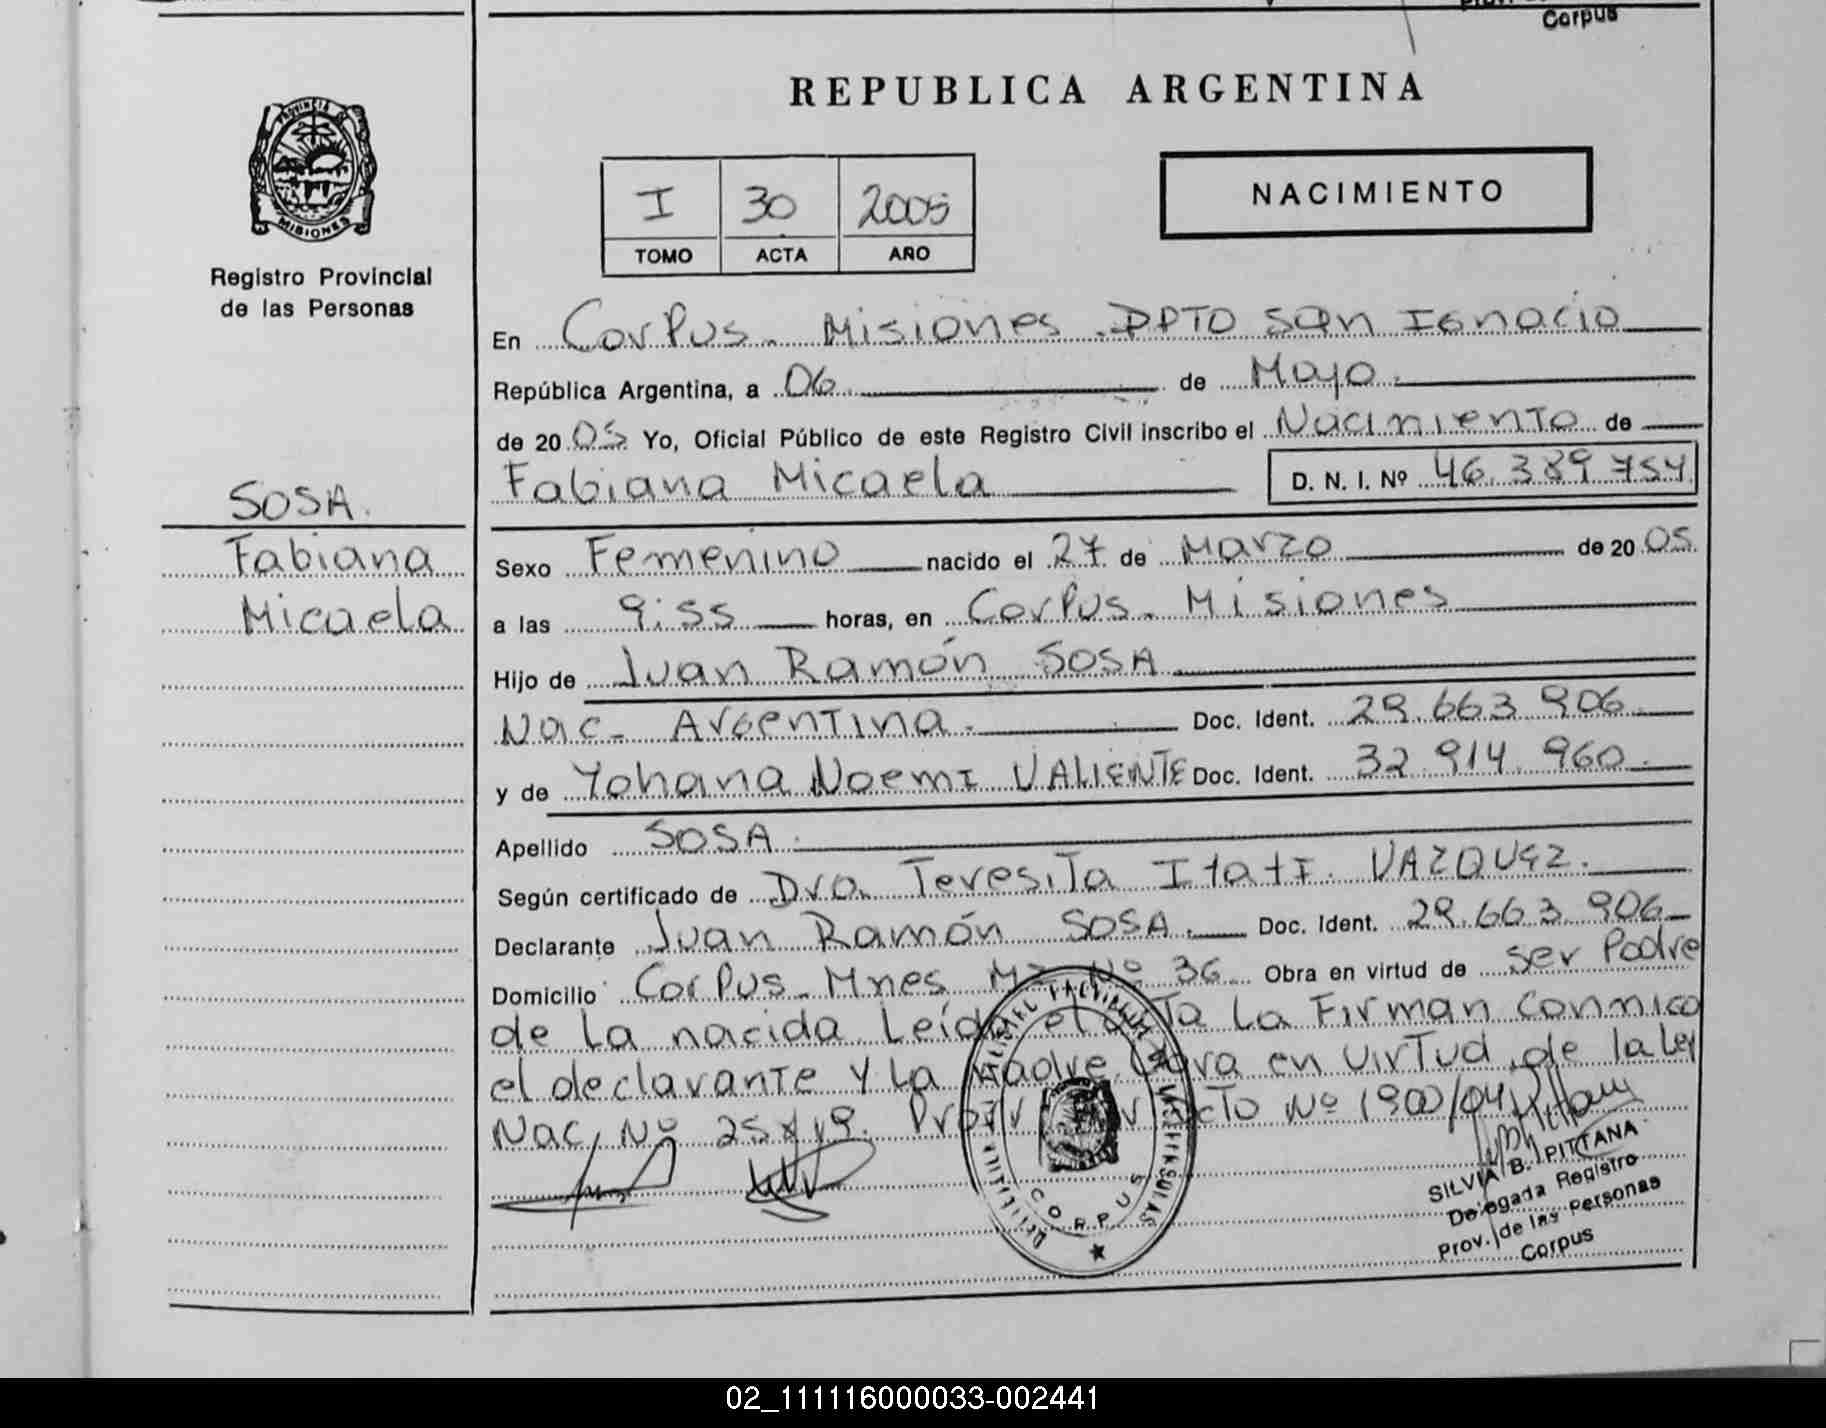 Corpus
REPUBLICA ARGENTINA
PROVINCIA DE
MISIONES
I 30 2005
TOMO ACTA AÑO
NACIMIENTO
Registro Provincial
de las Personas
En Corpus - Misiones - DPTO San Ignacio
República Argentina, a 06 de Mayo
de 20 05 Yo, Oficial Público de este Registro Civil inscribo el Nacimiento de
Fabiana Micaela D. N. I. Nº 46.389.754
SOSA.
Fabiana
Micaela
Sexo Femenino nacido el 27 de Marzo de 20 05
a las 9:55 horas, en Corpus - Misiones
Hijo de Juan Ramón SOSA
Nac - Argentina. Doc. Ident. 29.663.906
y de Yohana Noemi VALIENTE Doc. Ident. 32.914.960
Apellido SOSA.
Según certificado de Dra. Teresita Itati. VAZQUEZ.
Declarante Juan Ramón SOSA. Doc. Ident. 29.663.906
Domicilio Corpus - Mnes Mz Nº 36 Obra en virtud de ser Padre
de la nacida Leída el acta La Firman conmigo
el declarante y La Madre. Obra en virtud de la Ley
Nac. Nº Nº 1900/04
CORPUS
SILVIA B. PITTANA
Delegada Registro
Prov. de las Personas
Corpus
02_111116000033-002441